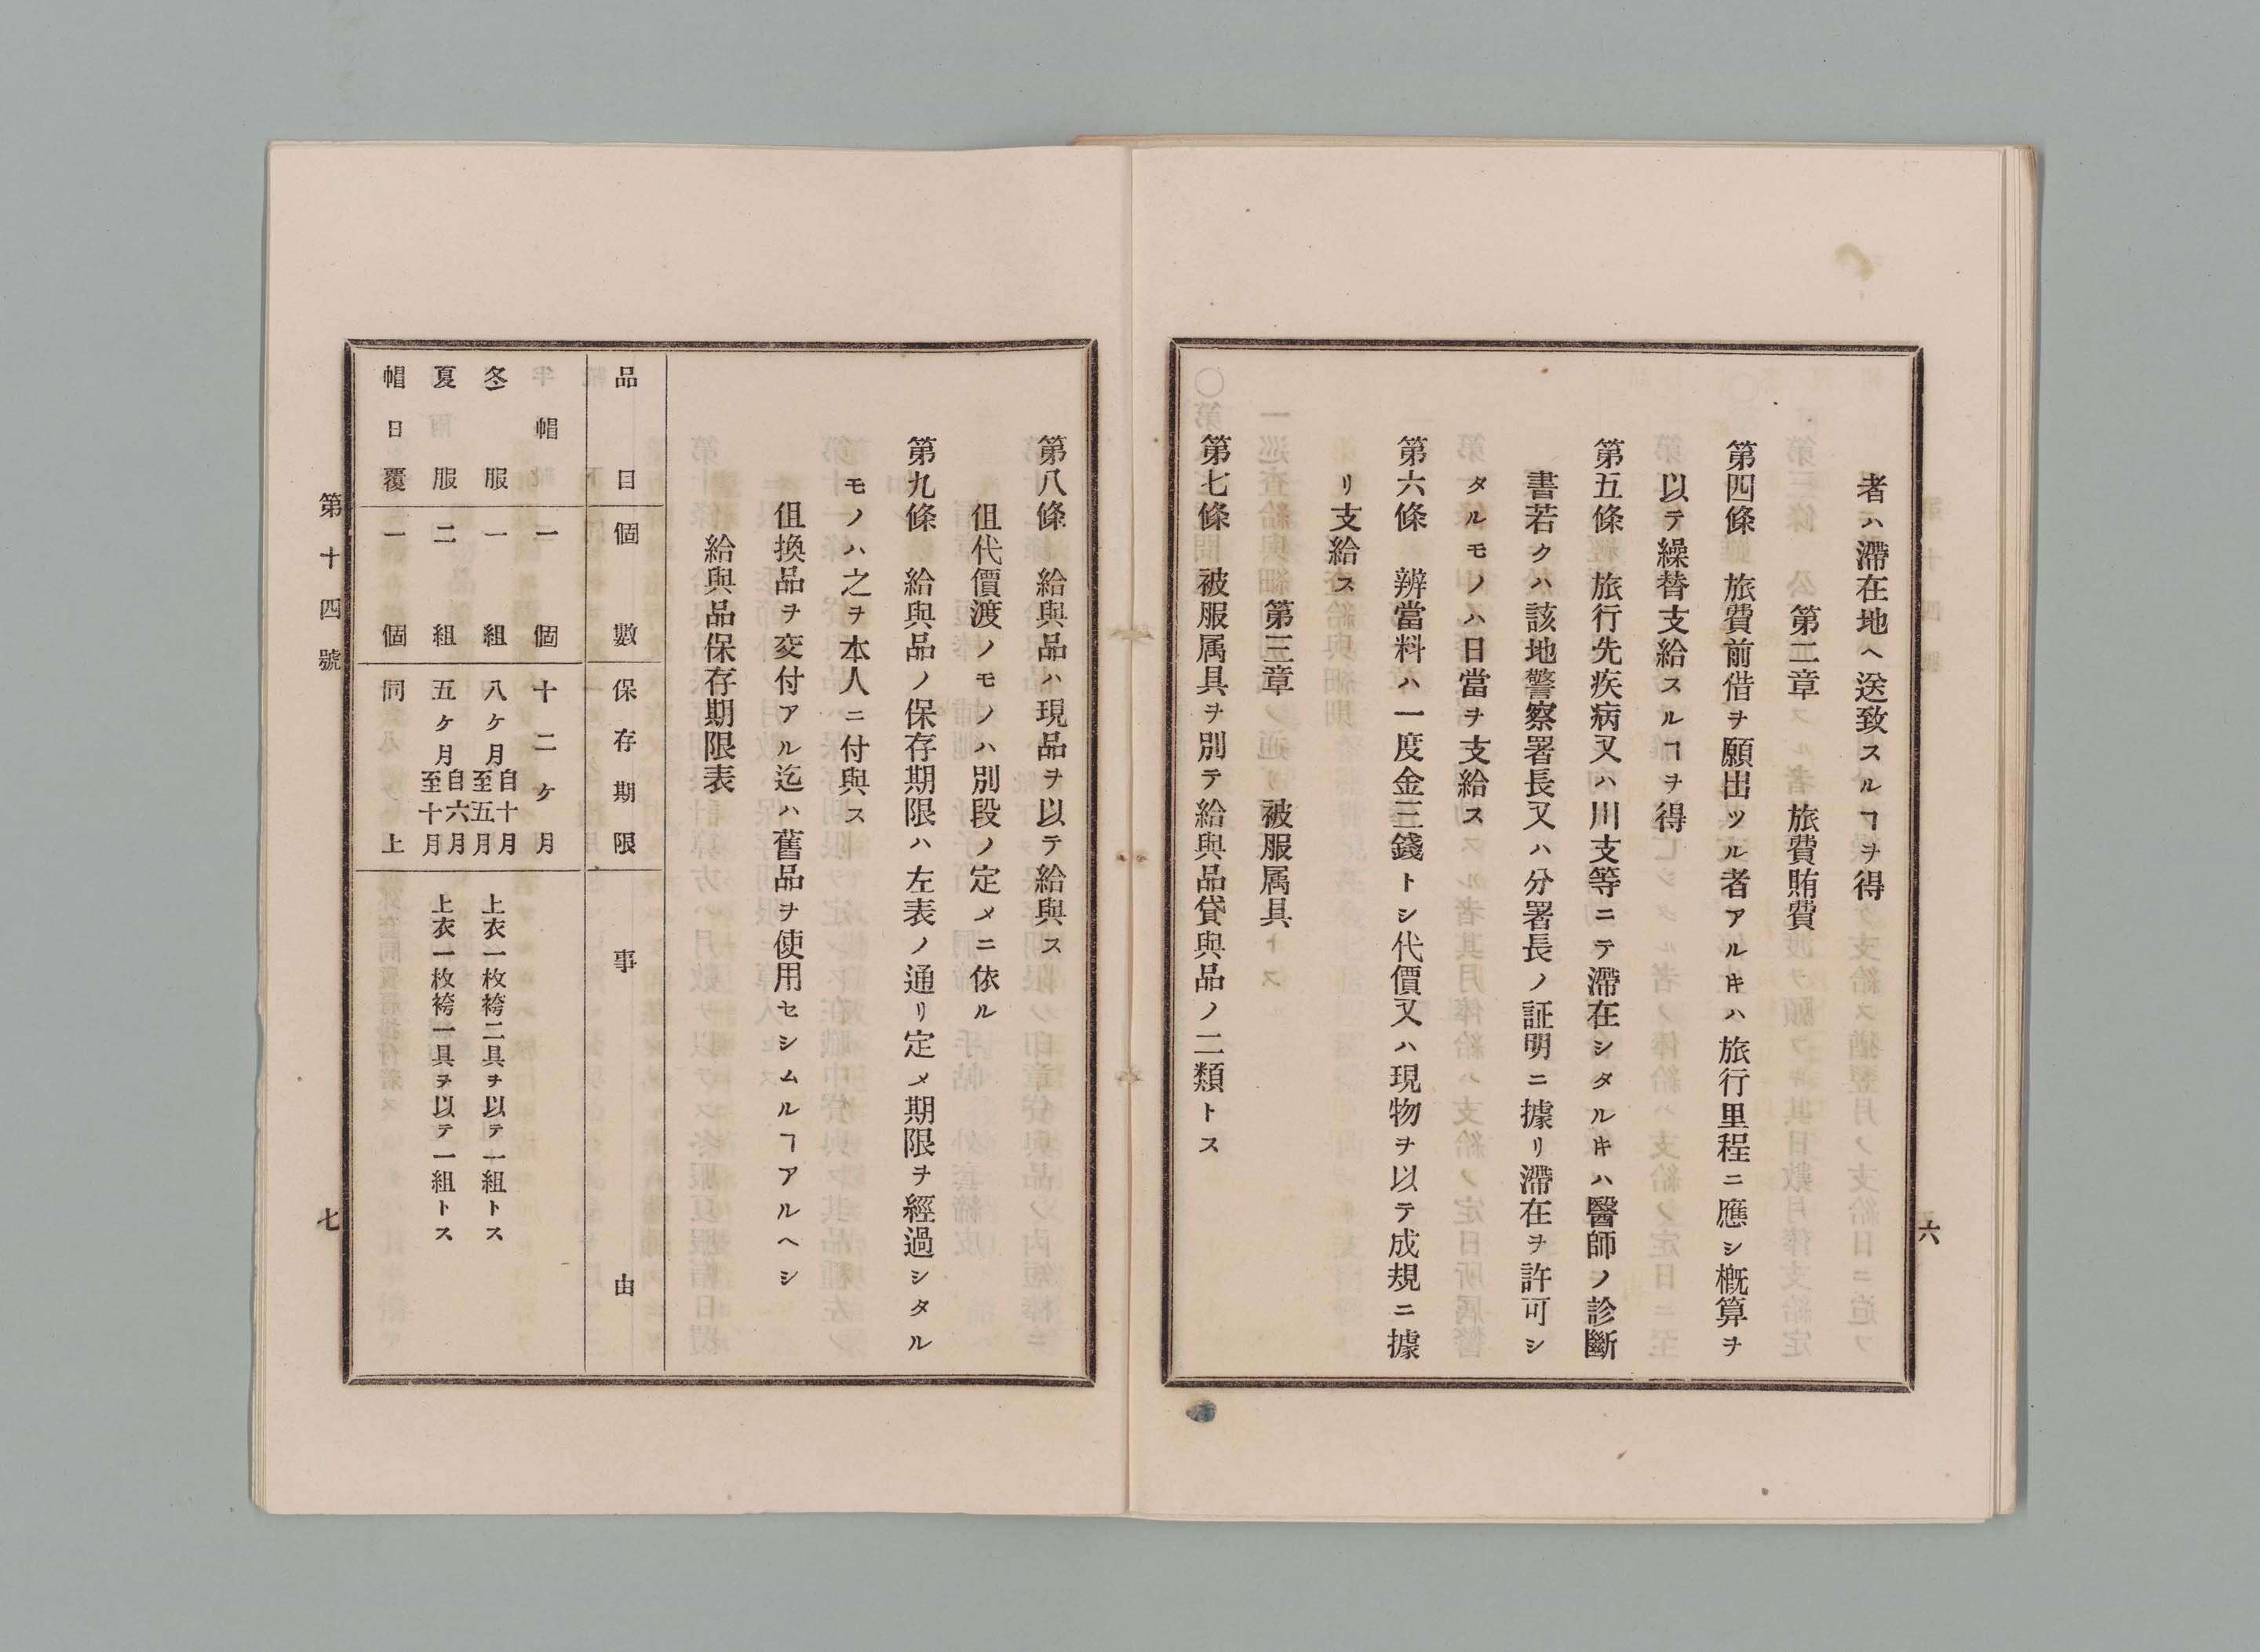 者ハ滯在地ヘ送致スルヿヲ得
第二章　旅費賄費
第四條　旅費前借ヲ願出ツル者アルキハ旅行里程ニ應シ概算ヲ
以テ繰替支給スルヿヲ得
第五條　旅行先疾病又ハ川支等ニテ滯在シタルキハ醫師ノ診斷
書若クハ該地警察署長又ハ分署長ノ証明ニ據リ滯在ヲ許可シ
タルモノハ日當ヲ支給ス
第六條　辨當料ハ一度金三錢トシ代價又ハ現物ヲ以テ成規ニ據
リ支給ス
第三章　被服属具
第七條　被服属具ヲ別テ給與品貸與品ノ二類トス
六
第八條　給與品ハ現品ヲ以テ給與ス
伹代價渡ノモノハ別段ノ定メニ依ル
第九條　給與品ノ保存期限ハ左表ノ通リ定メ期限ヲ經過シタル
モノハ之ヲ本人ニ付與ス
伹換品ヲ交付アル迄ハ舊品ヲ使用セシムルヿアルヘシ
給與品保存期限表
品目　個數　保存期限　事由
帽　一個　十二ケ月
冬服　一組　八ケ月自十月至五月　上衣一枚袴二具ヲ以テ一組トス
夏服　二組　五ケ月自六月至十月　上衣一枚袴一具ヲ以テ一組トス
帽日覆　一個　同上
第十四號
七